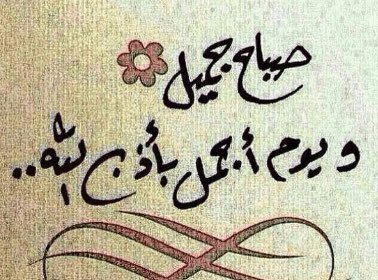 صباح جميل
ويوم أجمل بأذن الله..